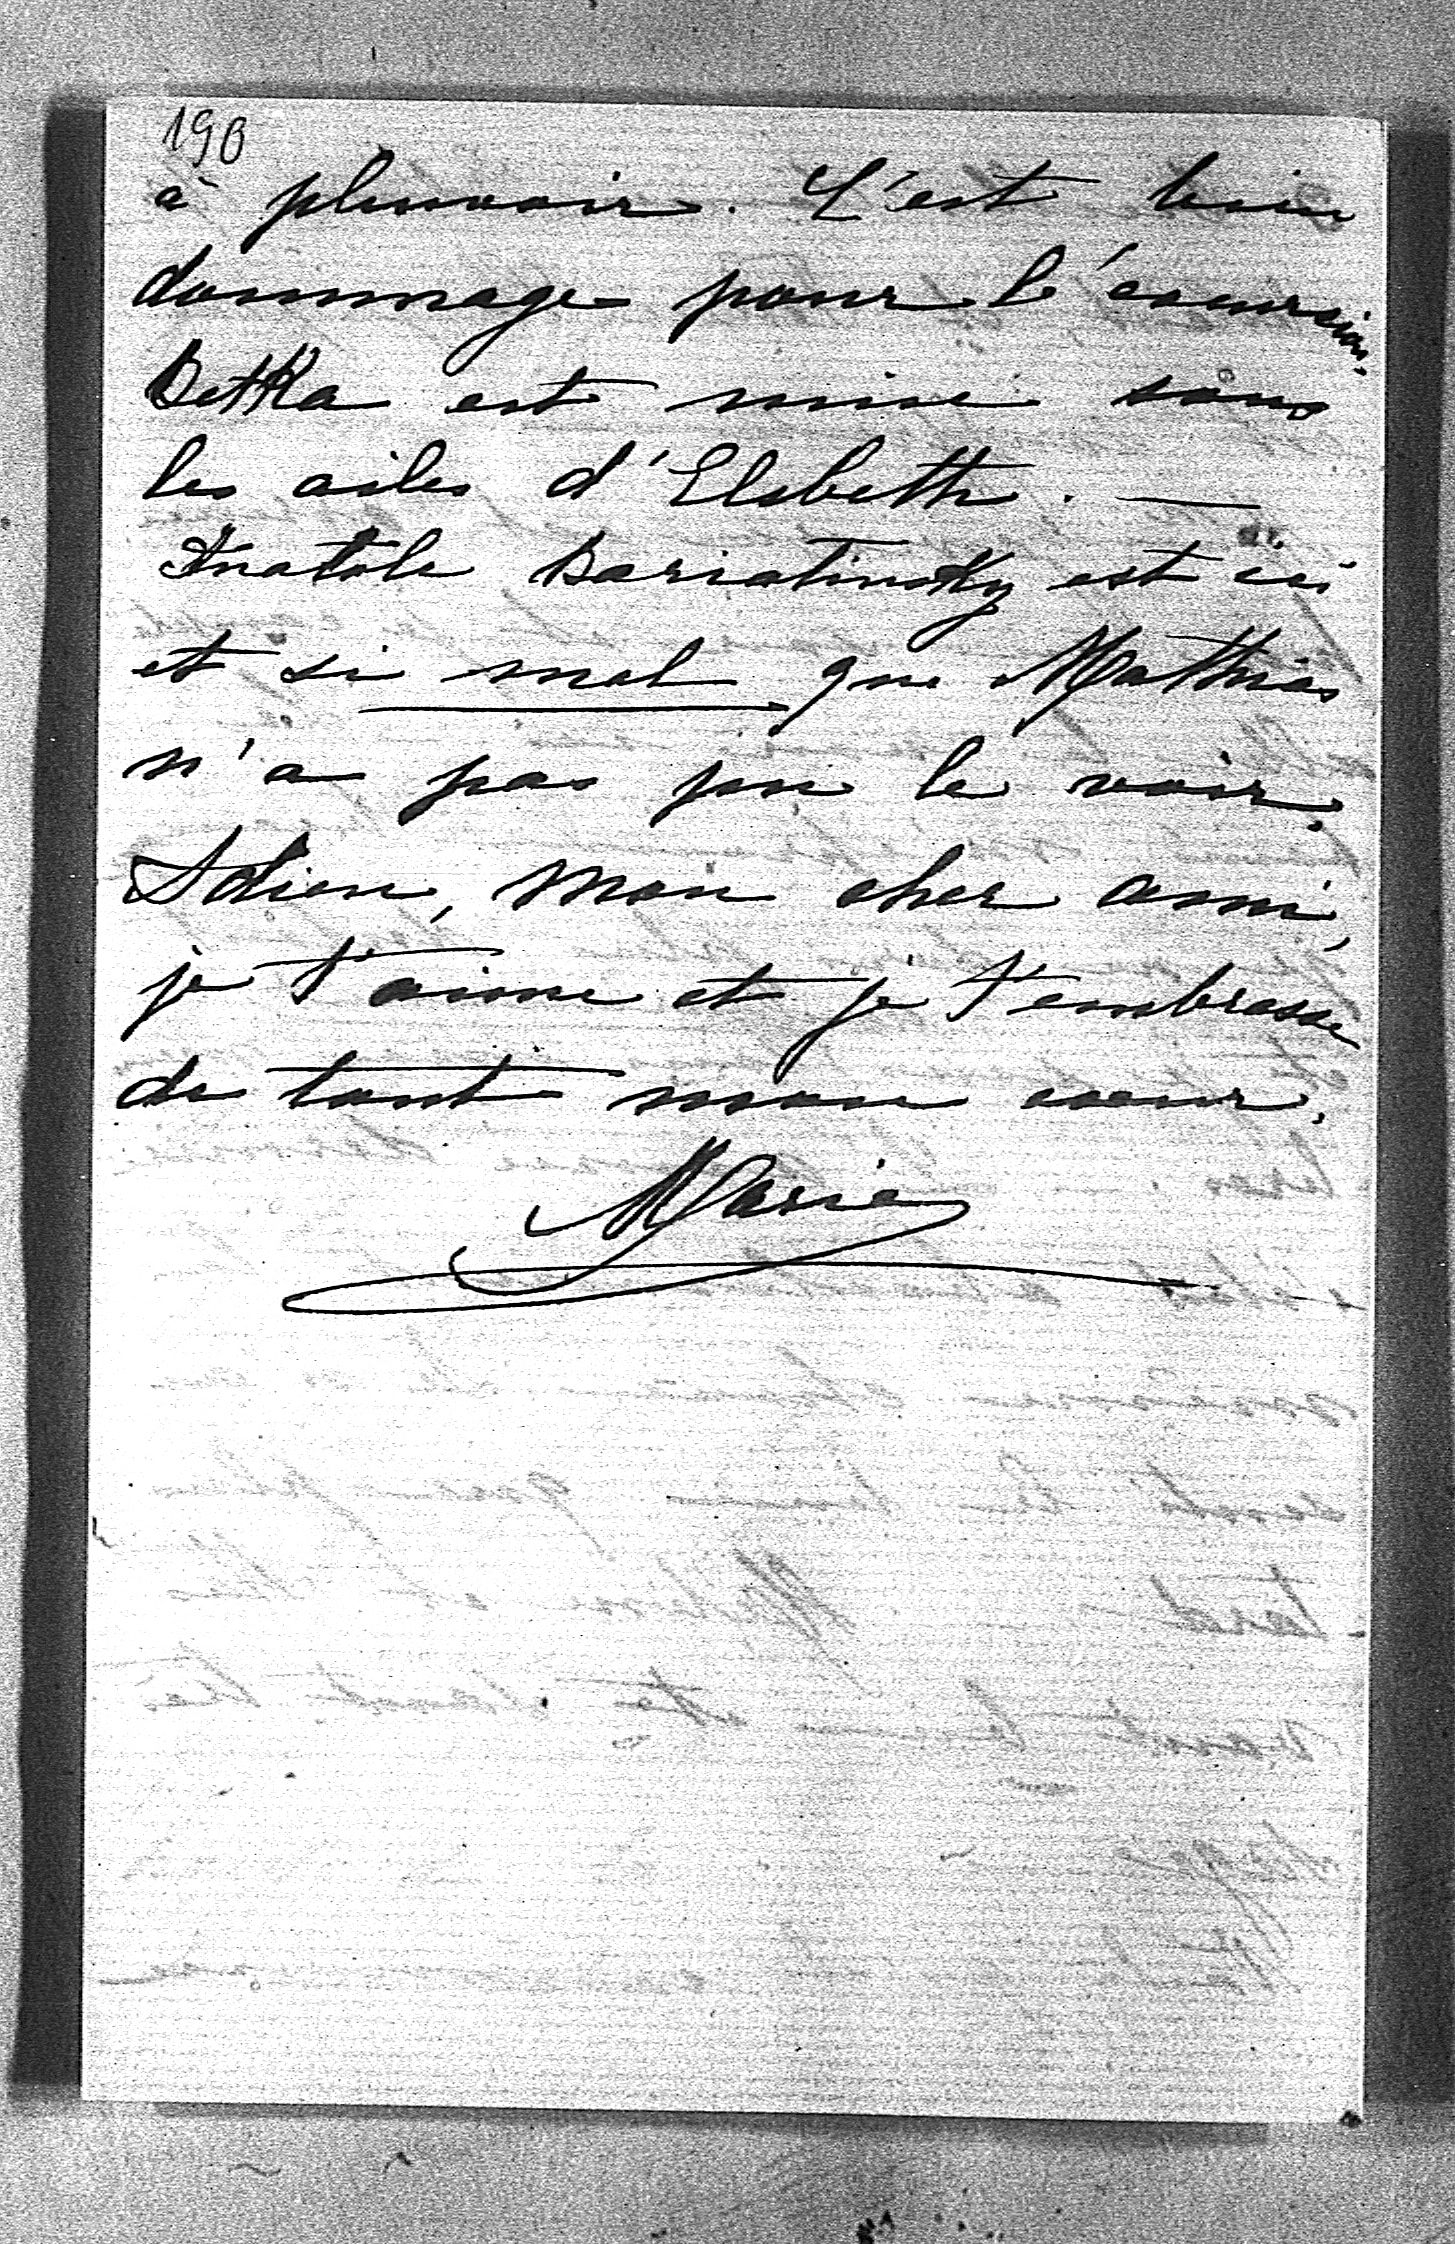 19в
à pleuvoir. C'est bien
dommage pour l'excursion.
Betka est mise sous
les ailes d'Elsbeth. —
Anatole Bariatinsky est ici
et si mal que Mathias
n'a pas pu le voir.
Adieu, mon cher ami,
je t'aime et je t'embrasse
de tout mon coeur.
Marie